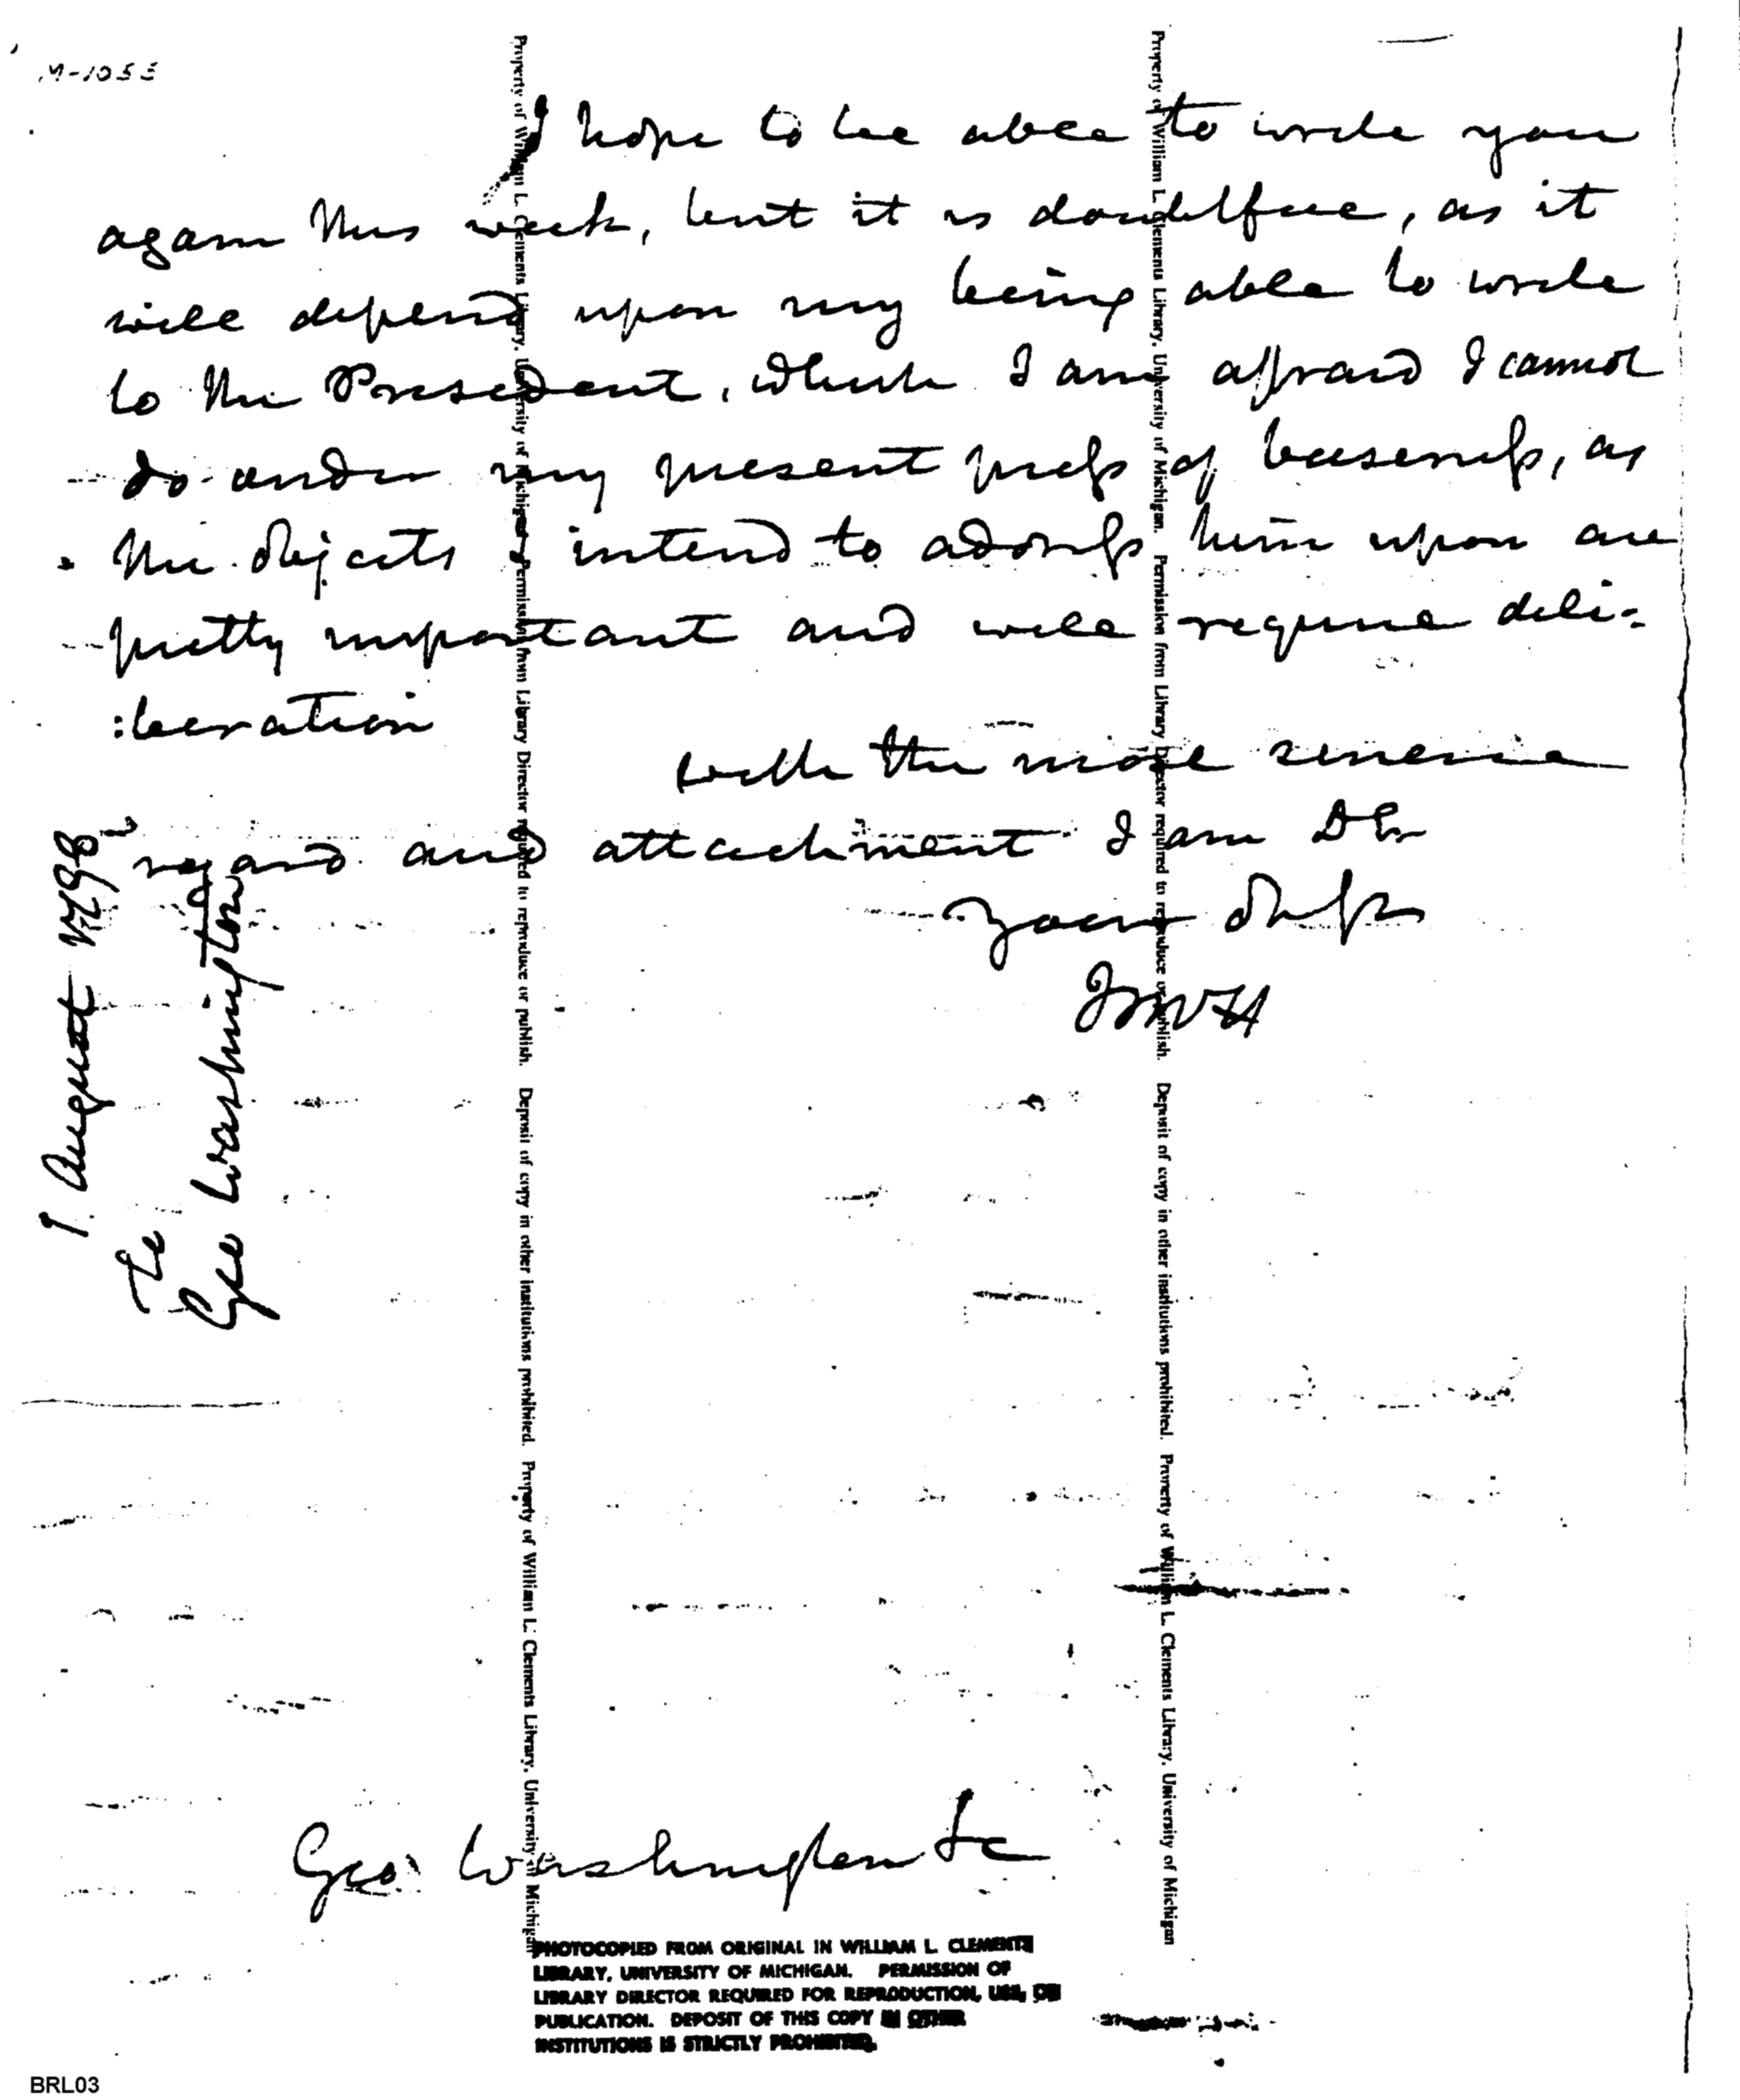 M-1055
I hope to be able to write you
again this week, but it is doubtful, as it
will depend upon my being able to write
to the President, which I am afraid I cannot
do under my present press of business, as
the objects I intend to address him upon are
pretty important and will require deli=
:beration
with the most sincere
regard and attachment I am D Sr
Your
JMcH
1 August 1798
To
Geo Washington
Geo Washington
Property of William L. Clements Library, University of Michigan. Permission from Library Director required to reproduce or publish. Deposit of copy in other institutions prohibited. Property of William L. Clements Library, University of Michigan
Property of William L. Clements Library, University of Michigan. Permission from Library Director required to reproduce or publish. Deposit of copy in other institutions prohibited. Property of William L. Clements Library, University of Michigan
PHOTOCOPIED FROM ORIGINAL IN WILLIAM L. CLEMENTS
LIBRARY, UNIVERSITY OF MICHIGAN. PERMISSION OF
LIBRARY DIRECTOR REQUIRED FOR REPRODUCTION, USE, OR
PUBLICATION. DEPOSIT OF THIS COPY IN OTHER
INSTITUTIONS IS STRICTLY PROHIBITED.
BRL03